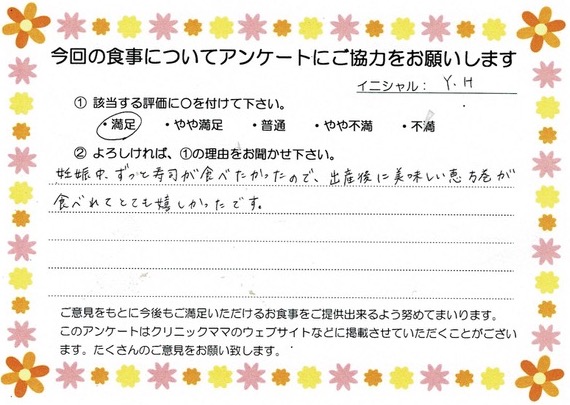 今回の食事についてアンケートにご協力をお願いします
イニシャル： Y.H
① 該当する評価に○を付けて下さい。
・満足 ・やや満足 ・普通 ・やや不満 ・不満
② よろしければ、①の理由をお聞かせ下さい。
妊娠中、ずっと寿司が食べたかったので、出産後に美味しい恵方巻が
食べれてとても嬉しかったです。
ご意見をもとに今後もご満足いただけるお食事をご提供出来るよう努めてまいります。
このアンケートはクリニックママのウェブサイトなどに掲載させていただくことがござい
ます。たくさんのご意見をお願い致します。